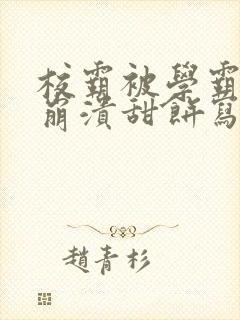 校霸被學霸
崩潰甜餅寫
趙青杉